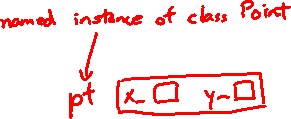 named instance of class Point
pt x_ y_